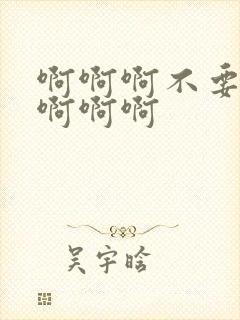 啊啊啊不要
啊啊啊
吴宇晗